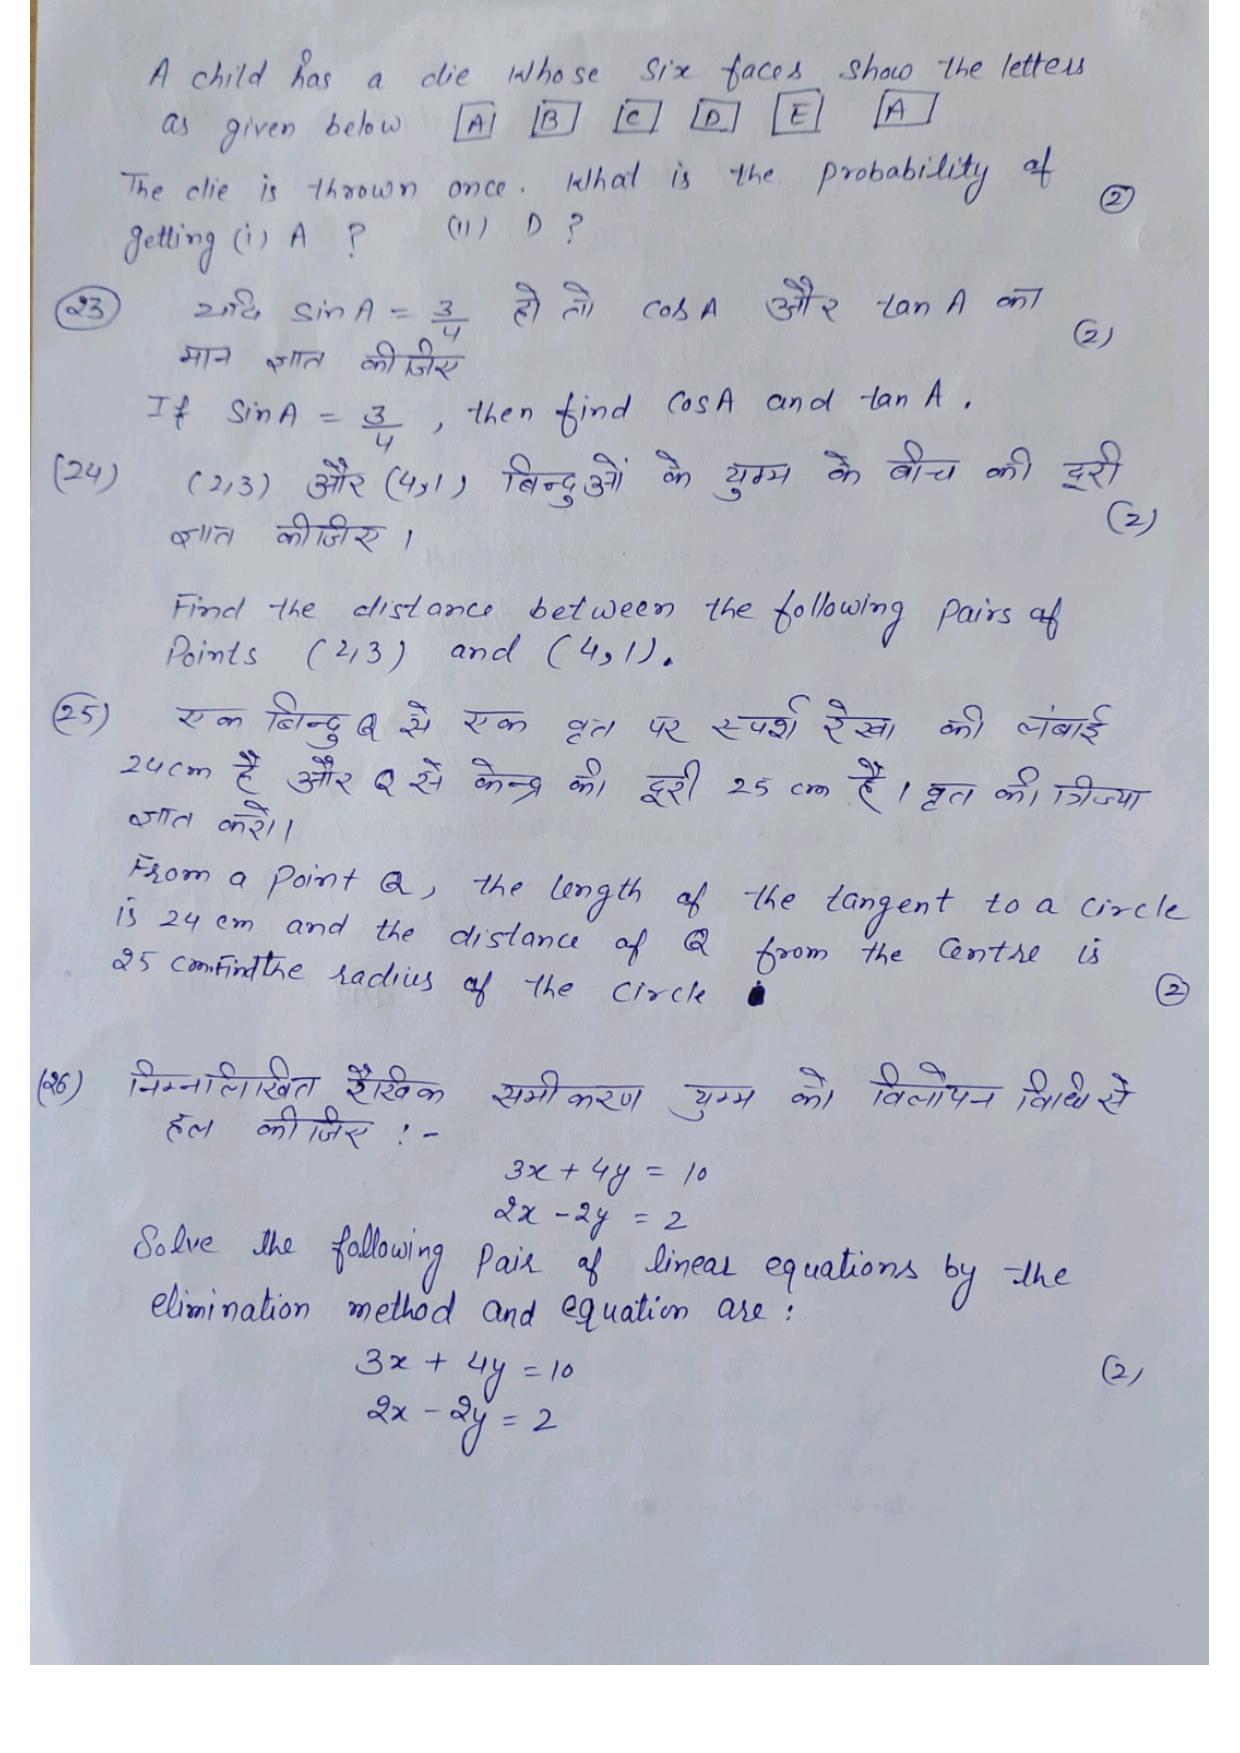 A child has a die whose six faces show the letters
as given below [A] [B] [C] [D] [E] [A]
The die is thrown once. What is the probability of
getting (i) A ? (ii) D ? (2)
(23) यदि sin A = 3/4 हो तो cos A और tan A का
मान ज्ञात कीजिए (2)
If sin A = 3/4, then find cos A and tan A.
(24) (2,3) और (4,1) बिन्दुओं के युग्म के बीच की दूरी
ज्ञात कीजिए। (2)
Find the distance between the following pairs of
Points (2,3) and (4,1).
(25) एक बिन्दु Q से एक वृत पर स्पर्श रेखा की लंबाई
24cm है और Q से केन्द्र की दूरी 25 cm हैं। वृत की त्रिज्या
ज्ञात करो।
From a point Q, the length of the tangent to a circle
is 24 cm and the distance of Q from the Centre is
25 cm. Find the radius of the circle (2)
(26) निम्नलिखित रैखिक समीकरण युग्म को विलोपन विधि से
हल कीजिए :-
3x + 4y = 10
2x - 2y = 2
Solve the following pair of linear equations by the
elimination method and equation are:
3x + 4y = 10 (2)
2x - 2y = 2